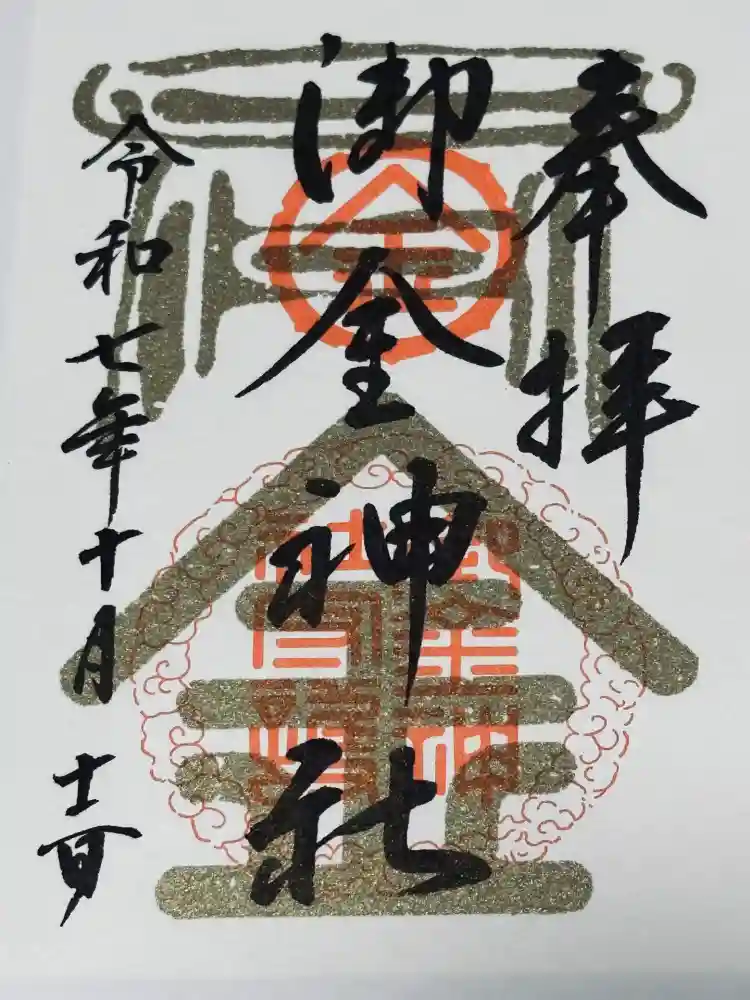 奉拝
御金神社
令和七年十月十二日
金
金